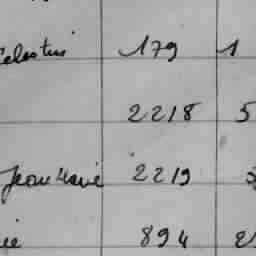 Celestin 179 1
2218 5
Jean Marie 2219
ie 894 2